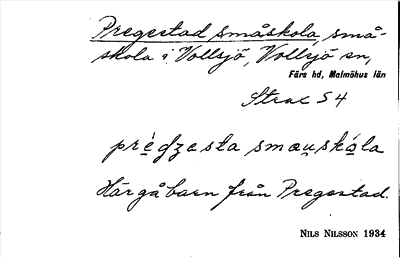 Pregestad småskola, små-
skola i Vollsjö, Vollsjö sn,
Färs hd, Malmöhus län
54
prédzesta smauskóla
Här gå barn från Pregestad.
NILS NILSSON 1934